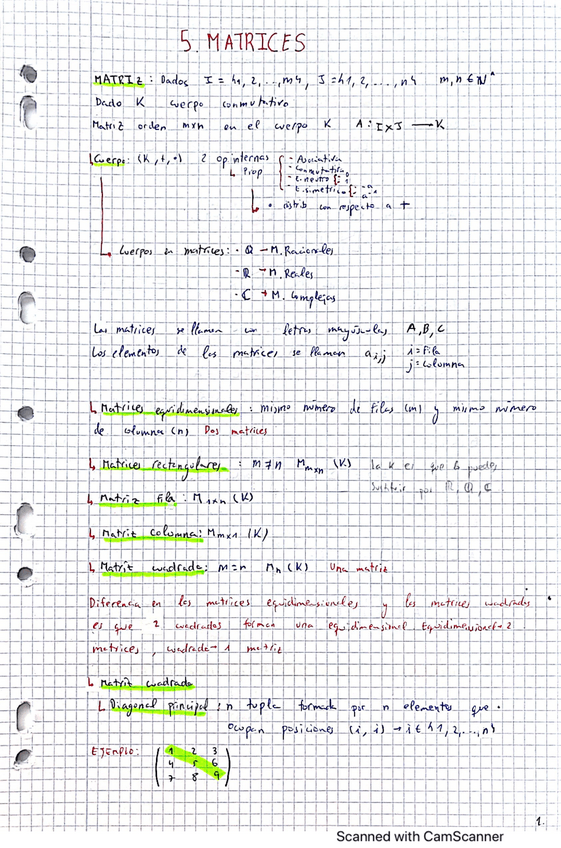 5. MATRICES
MATRIZ: Dados I = {1, 2, ..., m}, J = {1, 2, ..., n} m, n ∈ N*
Dado K cuerpo conmutativo
Matriz orden mxn en el cuerpo K A: I x J → K
Cuerpo: (K, +, •) 2 op internas
↳ Prop
- Asociativa
- Conmutativa
- E. neutro
- E. simétrico
• distrib con respecto a +
Cuerpos en matrices: · Q → M. Racionales
· R → M. Reales
· C → M. Complejas
Las matrices se llaman con letras mayúsculas A, B, C
Los elementos de las matrices se llaman ai,j i = Fila
j = columna
↳ Matrices equidimensionales: mismo número de filas (m) y mismo número
de columna (n) Dos matrices
↳ Matrices rectangulares: m ≠ n Mmxn (K) la K es que lo puedes
sustituir por R, Q, C
↳ Matriz Fila: M1xn (K)
↳ Matriz Columna: Mmx1 (K)
↳ Matriz cuadrada: m = n Mn (K) Una matriz
Diferencia en las matrices equidimensionales y las matrices cuadradas
es que 2 cuadrados forman una equidimensional Equidimensional → 2
matrices, cuadrada → 1 matriz
↳ Matriz cuadrada
↳ Diagonal principal: n tupla formada por n elementos que
ocupan posiciones (i, i) → i ∈ {1, 2, ..., n}
EJEMPLO: 1 2 3
4 5 6
7 8 9
1.
Scanned with CamScanner